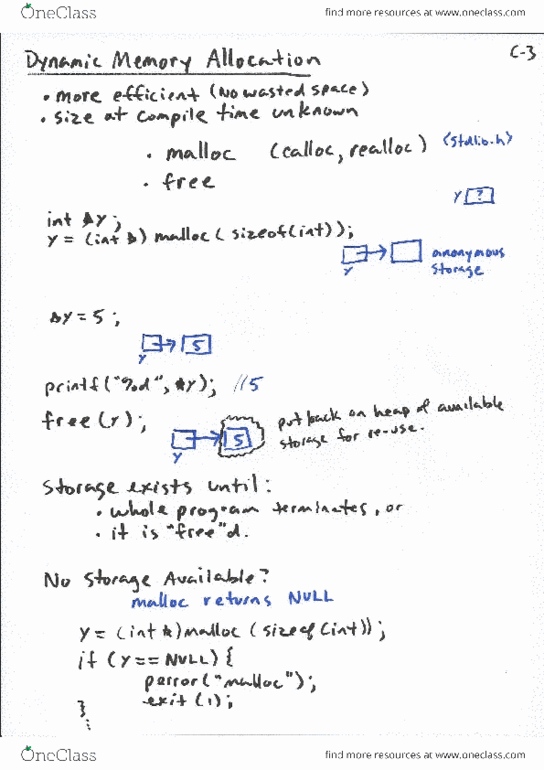 OneClass
find more resources at www.oneclass.com
C-3
Dynamic Memory Allocation
• more efficient (No wasted space)
• size at compile time unknown
• malloc (calloc, realloc) (stdlib.h)
• free
Y ?
int *Y;
Y = (int *) malloc( sizeof(int));
Y
anonymous
storage
*Y = 5;
5
Y
printf("%d", *Y); //5
free(Y);
5
Y
put back on heap of available
storage for re-use.
Storage exists until:
• whole program terminates, or
• it is "free"d.
No Storage Available?
malloc returns NULL
Y = (int *)malloc (sizeof(int));
if (Y == NULL) {
perror("malloc");
exit(1);
}
⋮
OneClass
find more resources at www.oneclass.com